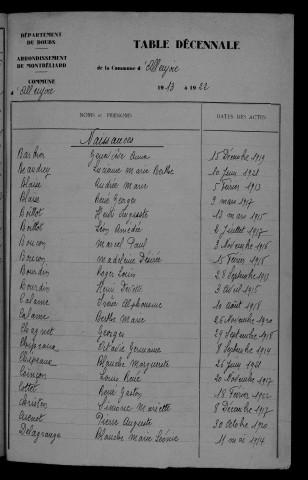 DÉPARTEMENT
DU DOUBS
ARRONDISSEMENT
DE MONTBÉLIARD
COMMUNE
TABLE DÉCENNALE
de la Commune d'
1913 à 1922
NOMS et PRÉNOMS DATES DES ACTES
Naissances
Barbier Anna 15 Décembre 1919
Beaudrey Luciane Marie Berthe 10 Juin 1921
Blaise Andrée Marie 5 Février 1913
Blaise René Georges 9 mars 1917
Boillot Henri Auguste 13 mars 1915
Boillot Léon Amédée 2 Juillet 1917
Boucon Marcel Paul 3 Novembre 1916
Boucon Madeleine Désirée 15 Février 1918
Bourdin Roger Louis 28 Septembre 1913
Bourdin Henri Désiré 3 Avril 1915
Calame Alphonsine 10 Août 1918
Calame Berthe Marie 26 Novembre 1920
Chagnet Georges 29 Septembre 1918
Chipeaux Germaine 8 Septembre 1914
Chipeaux Blanche Marguerite 26 Juin 1921
Coinçon Louis René 20 Novembre 1917
Cottet René Gaston 18 Février 1922
Simone Mariette 8 Décembre 1917
Cuenot Pierre Auguste 30 Octobre 1920
Delagrange Blanche Marie Léonie 11 mai 1914